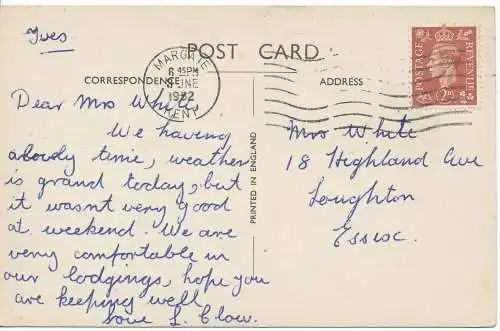 Tues
POST CARD
MARGATE
6 45PM
JNE
KENT
CORRESPONDENCE
ADDRESS
POSTAGE
REVENUE
2D
PRINTED IN ENGLAND
Dear Mrs White,
We having
a lovely time, weather
is grand today, but
it wasnt very good
at weekend. We are
very comfortable in
our lodgings, hope you
are keeping well
love L. Clow.
Mrs White
18 Highland Ave
Loughton
Essex.